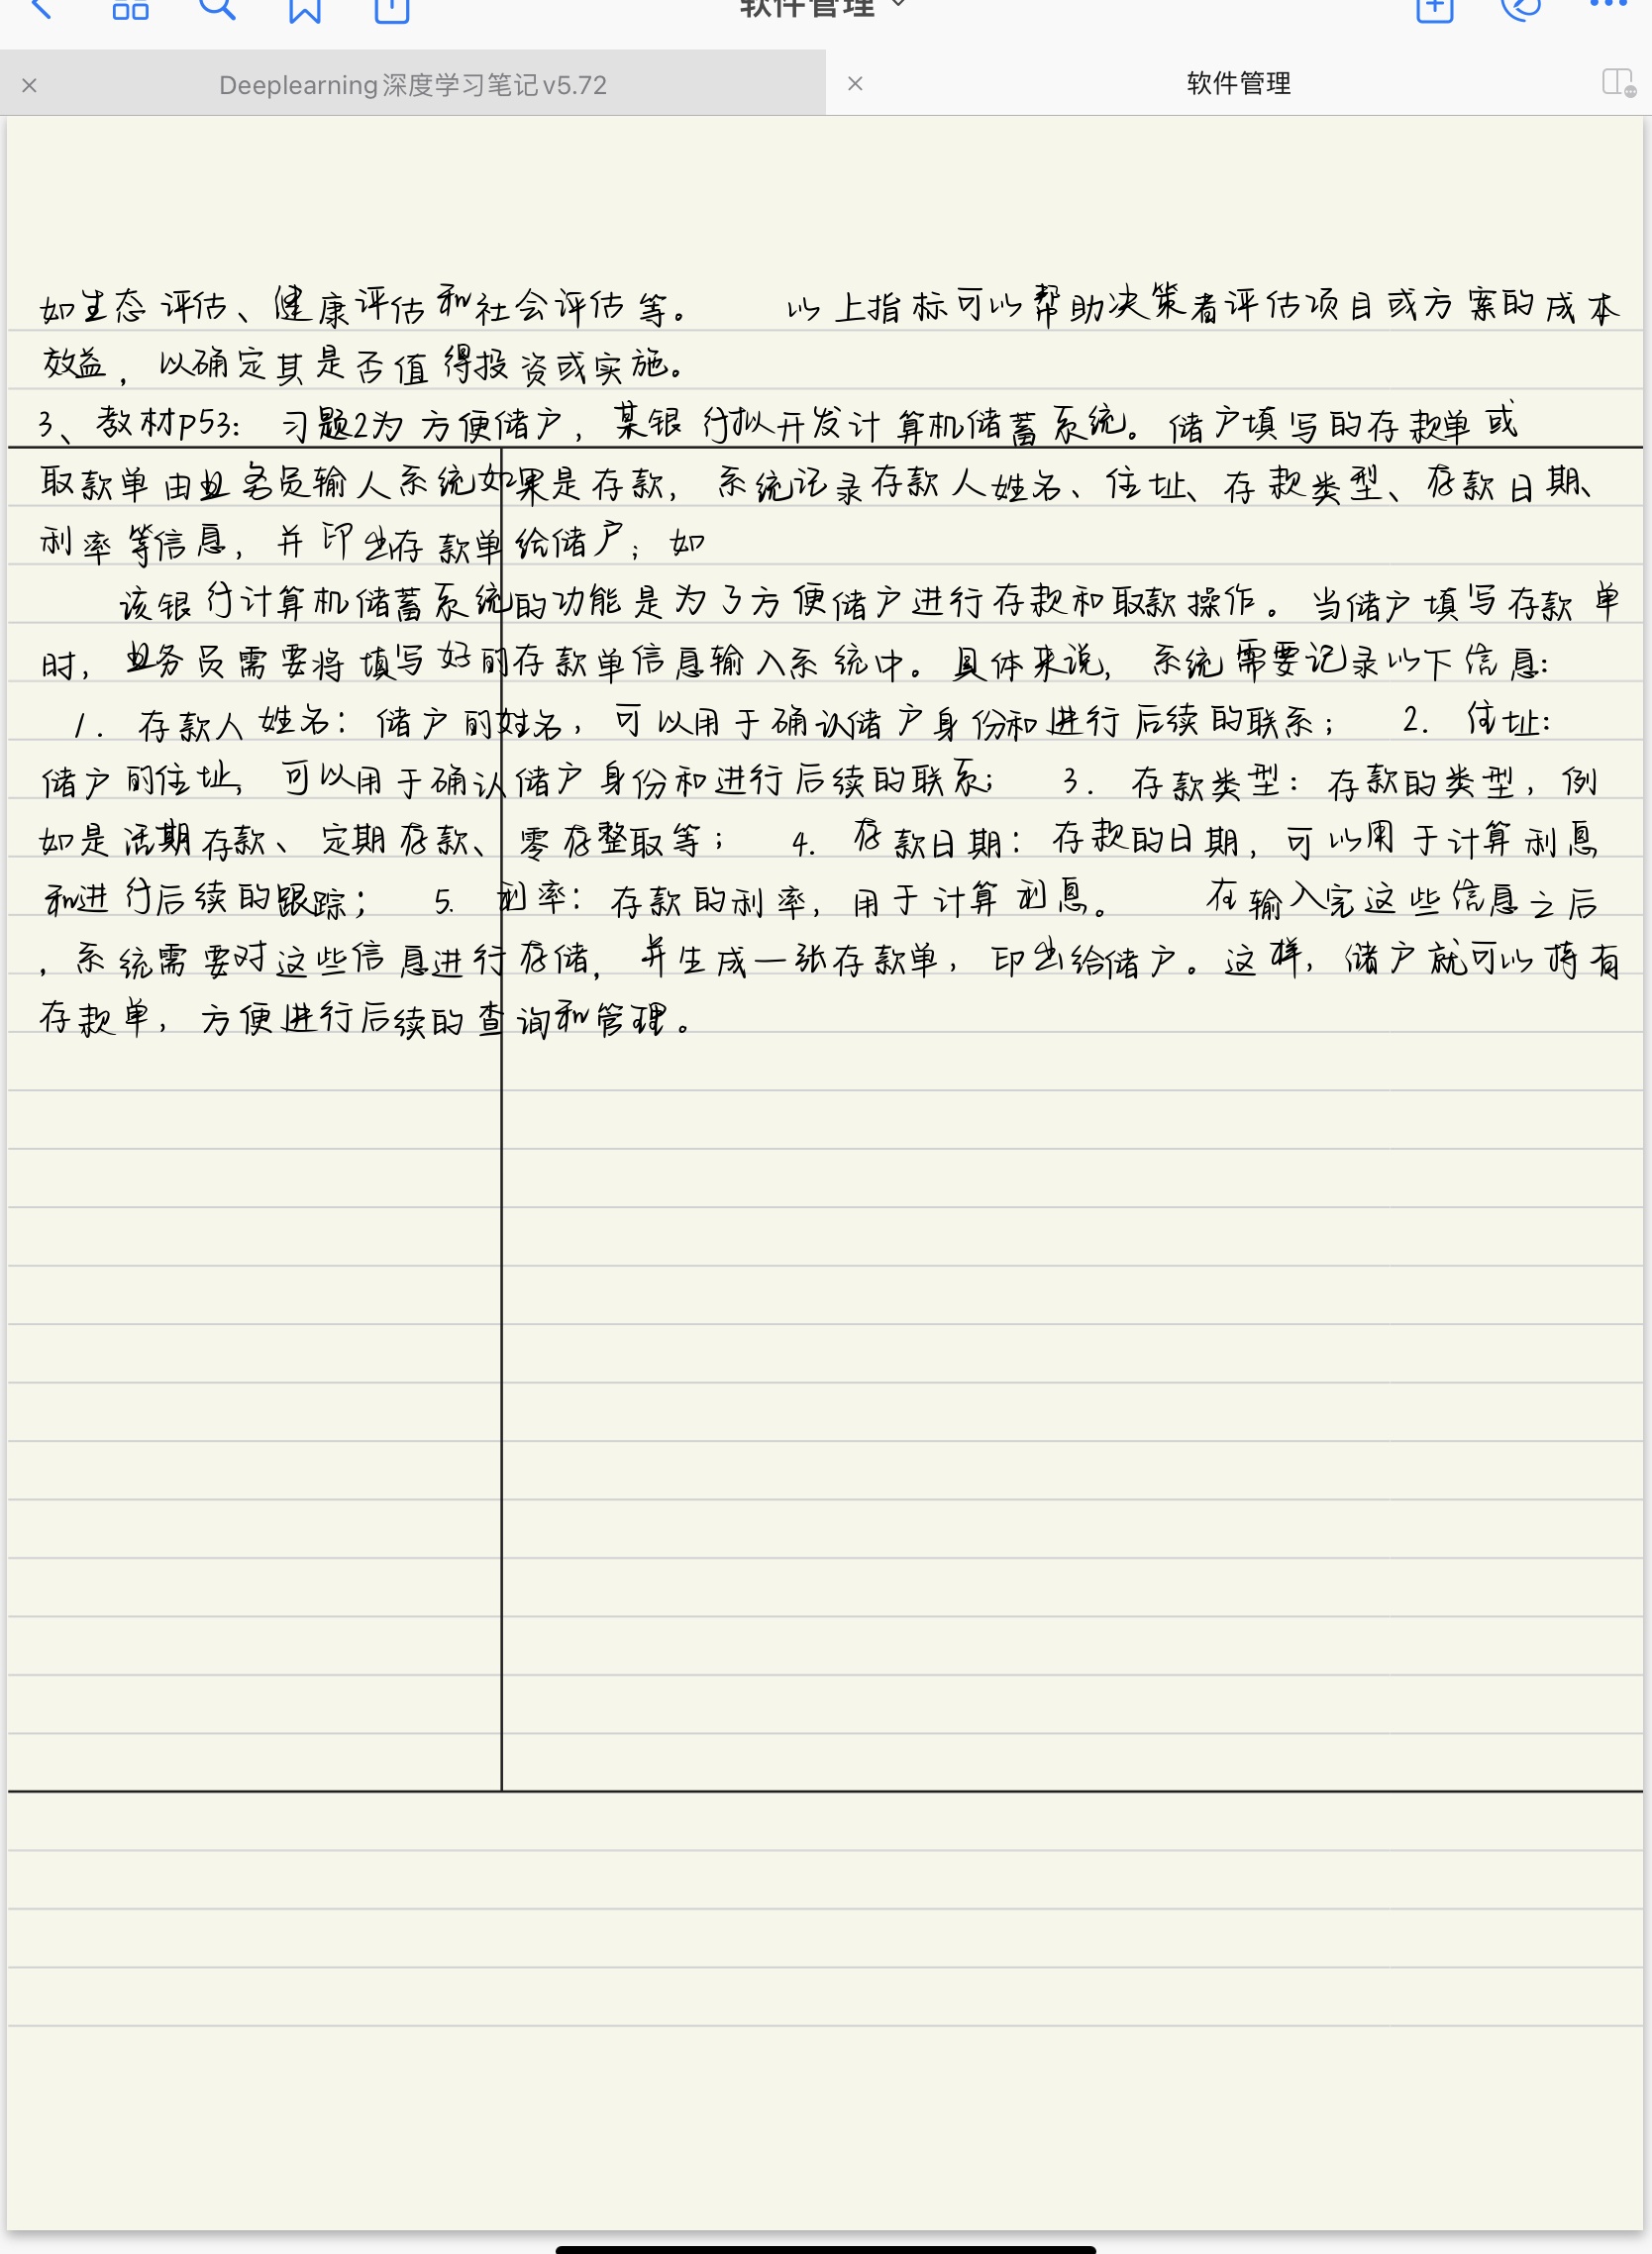 软件管理
Deeplearning深度学习笔记v5.72
软件管理
如生态评估、健康评估和社会评估等。 以上指标可以帮助决策者评估项目或方案的成本
效益，以确定其是否值得投资或实施。
3、教材p53：习题2为方便储户，某银行拟开发计算机储蓄系统。储户填写的存款单或
取款单由业务员输人系统如果是存款，系统记录存款人姓名、住址、存款类型、存款日期、
利率等信息，并印出存款单给储户；如
该银行计算机储蓄系统的功能是为了方便储户进行存款和取款操作。当储户填写存款单
时，业务员需要将填写好的存款单信息输入系统中。具体来说，系统需要记录以下信息：
1. 存款人姓名：储户的姓名，可以用于确认储户身份和进行后续的联系； 2. 住址：
储户的住址，可以用于确认储户身份和进行后续的联系； 3. 存款类型：存款的类型，例
如是活期存款、定期存款、零存整取等； 4. 存款日期：存款的日期，可以用于计算利息
和进行后续的跟踪； 5. 利率：存款的利率，用于计算利息。 在输入完这些信息之后
，系统需要对这些信息进行存储，并生成一张存款单，印出给储户。这样，储户就可以持有
存款单，方便进行后续的查询和管理。